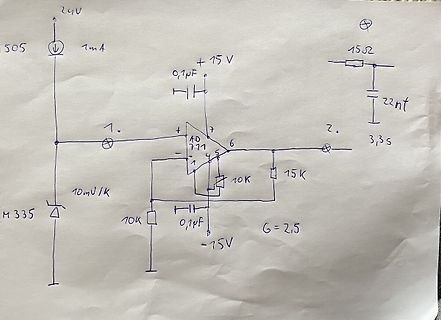 24V
505
1mA
+ 15V
0,1µF
15Ω
22nF
3,3s
1.
+
7
AD
711
6
2.
-
1
4
5
10K
15K
10mV/K
M335
10K
0,1µF
-15V
G = 2,5